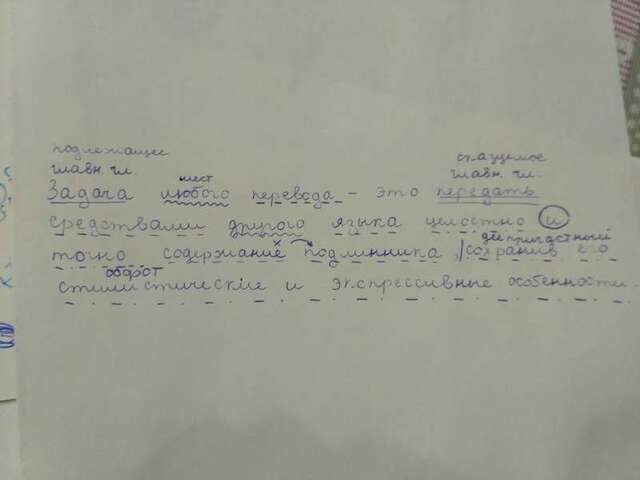 подлежащее сказуемое
главн. чл. мест главн. чл.
Задача любого перевода - это передать
средствами другого языка целостно и
деепричастный
точно содержание подлинника, сохранив его
оборот
стилистические и экспрессивные особенности.